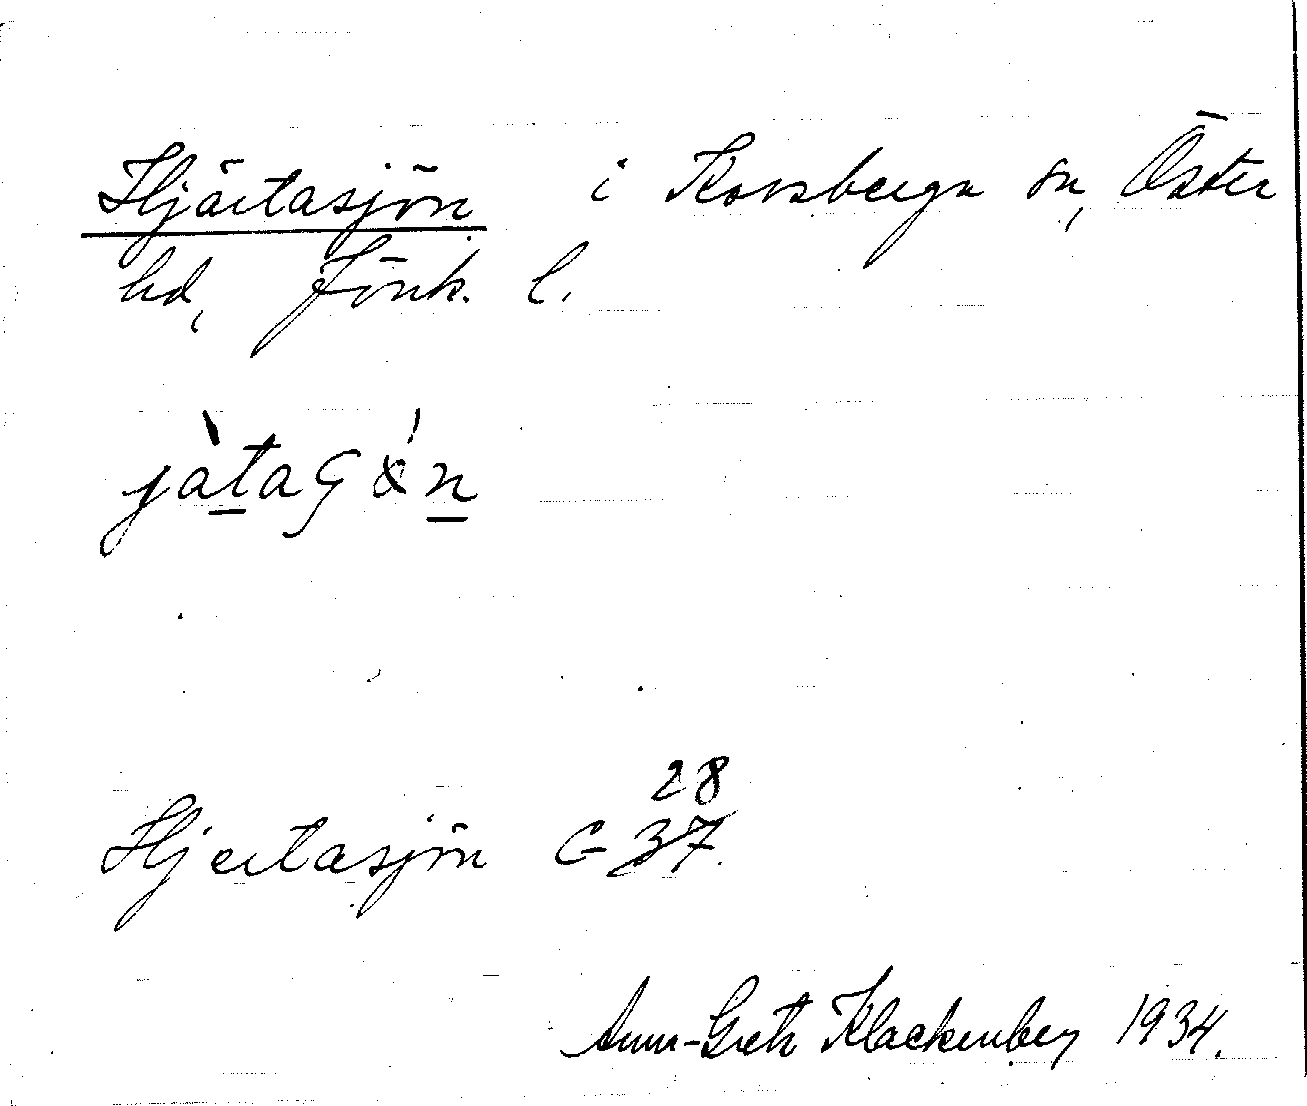 Hjärtasjön i Korsberga sn, Öster
hd, Jönk. l.
jàtaɢɵ́n
28
Hjertasjön G 37.
Ann-Greth Klackenberg 1934.